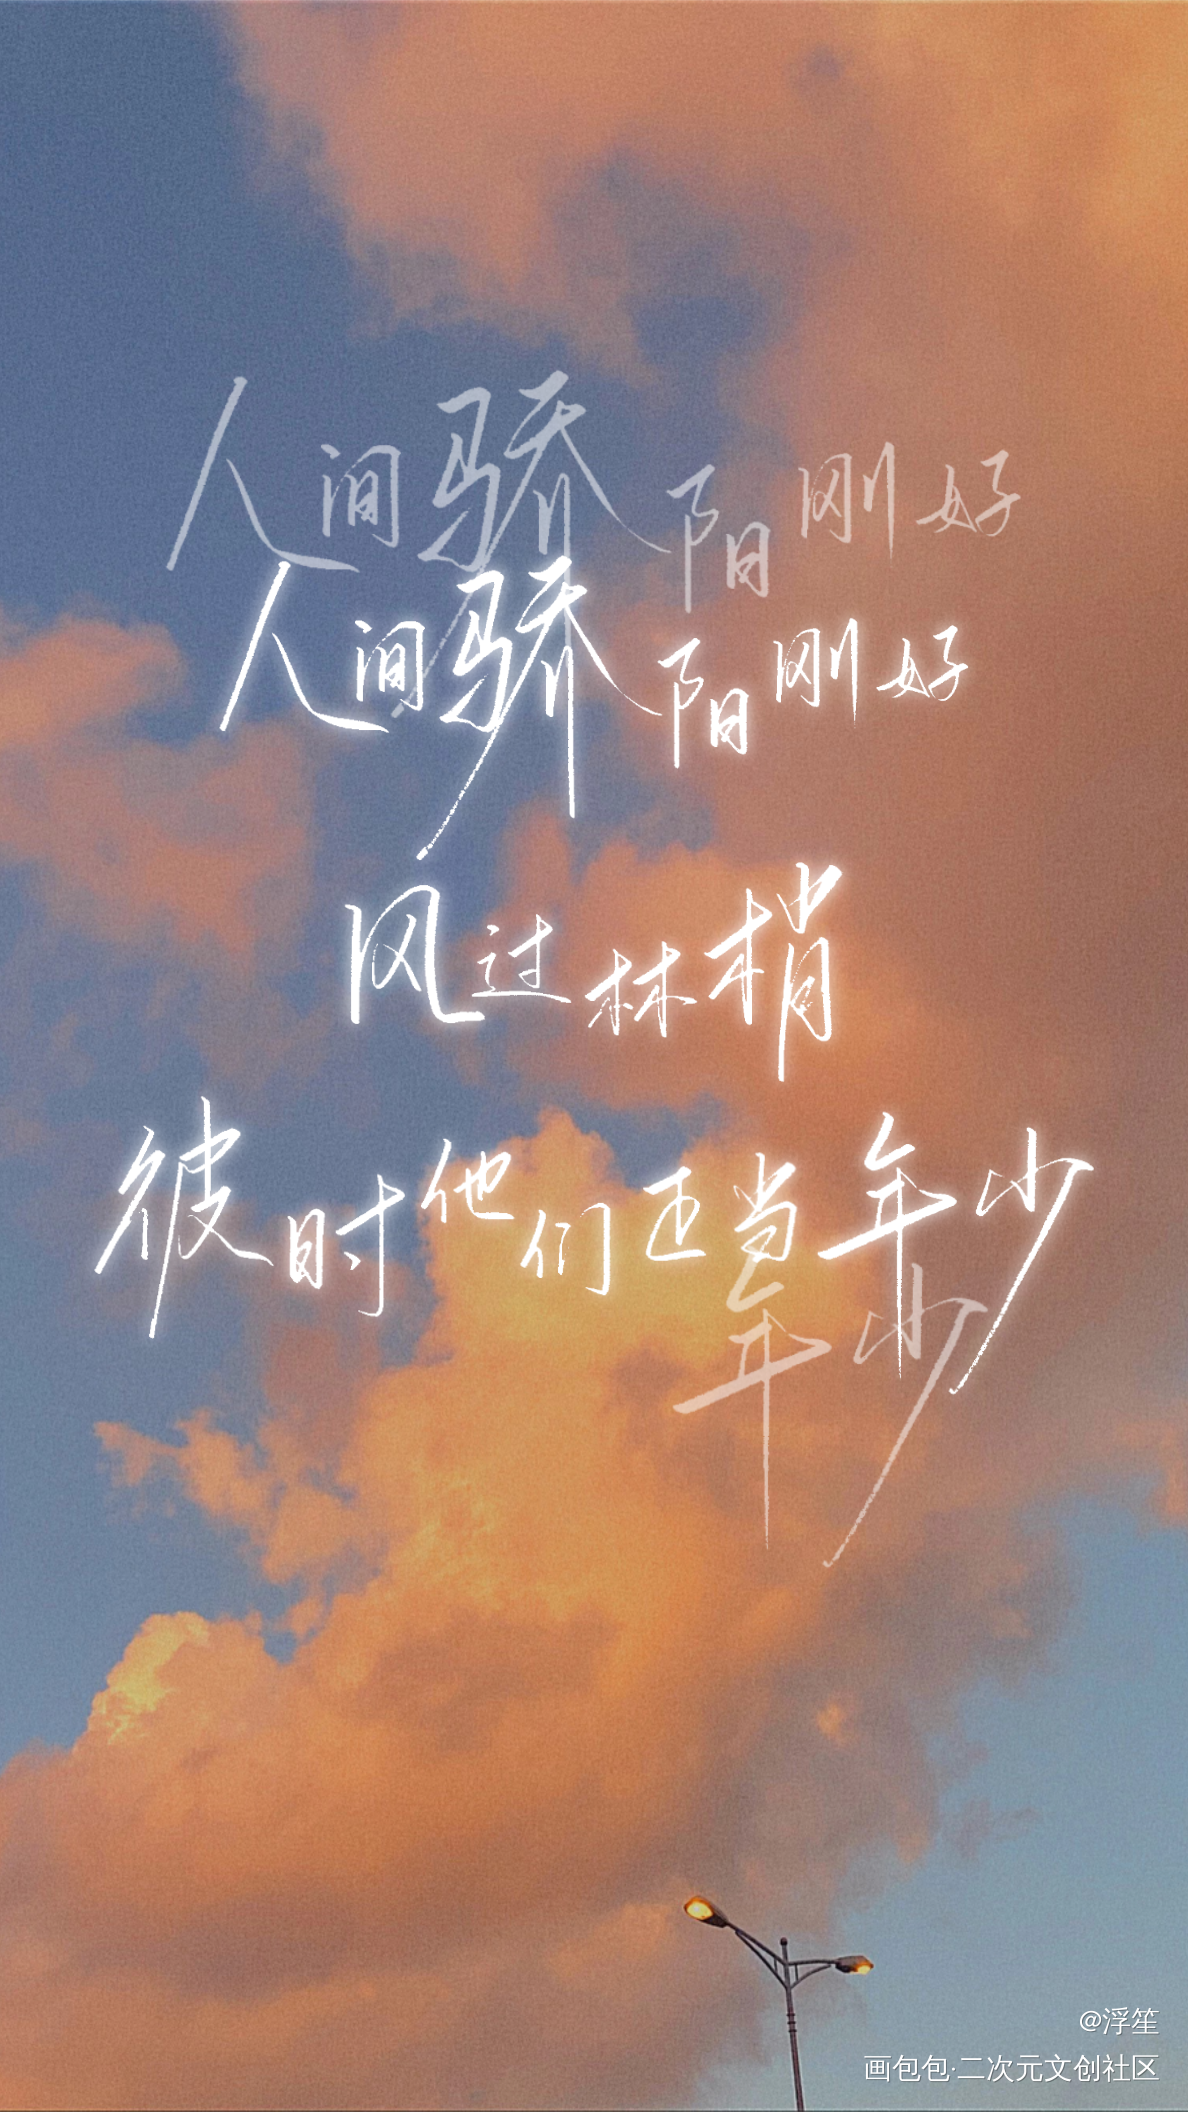 人间骄阳刚好
人间骄阳刚好
风过林梢
彼时他们正当年少
年少
@浮笙
画包包·二次元文创社区